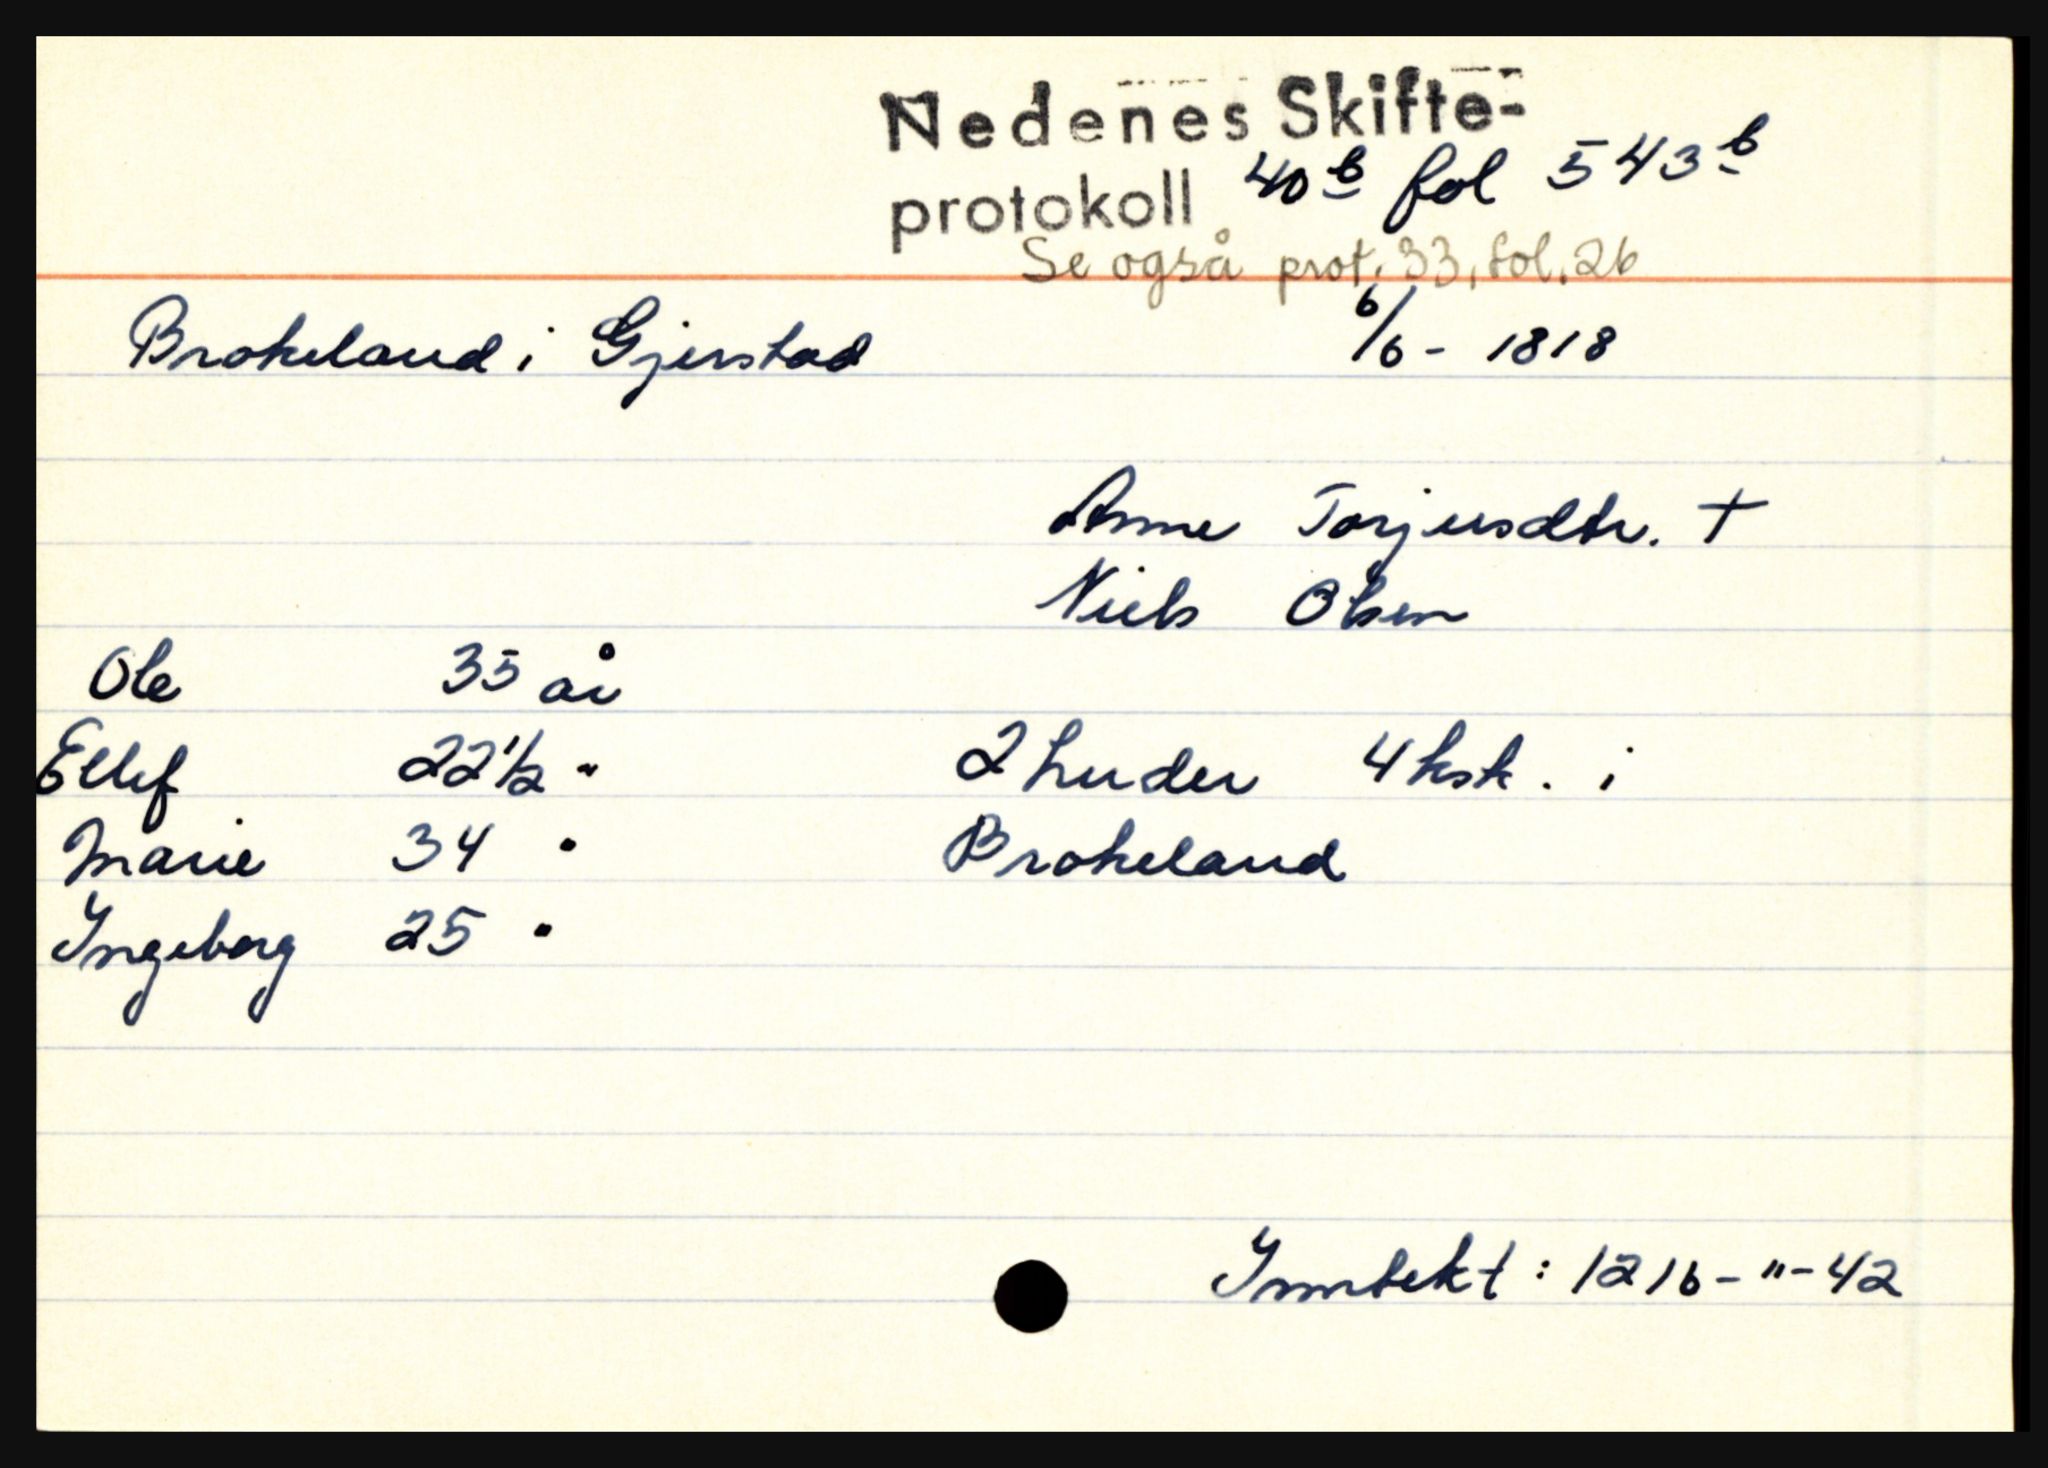 Nedenes Skifte-
protokoll 40b fol 543b
Se også prot. 33, fol. 26
Brokeland i Gjerstad 6/6 - 1818
Anne Torjusdtr. +
Niels Olsen
Ole 35 år
Ellef 22 1/2 " 2 huder 4 ksk. i
Marie 34 " Brokeland
Ingeborg 25 "
Inntekt: 1216-"-42